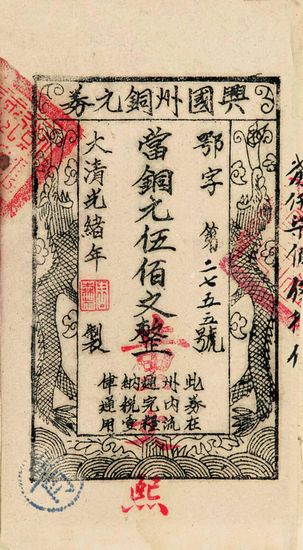 興國州銅元券
鄂字 第二七五五號
當銅元伍佰之整
大清光緒年製
此券在
州内流
通完糧
納税壹
通用
熙